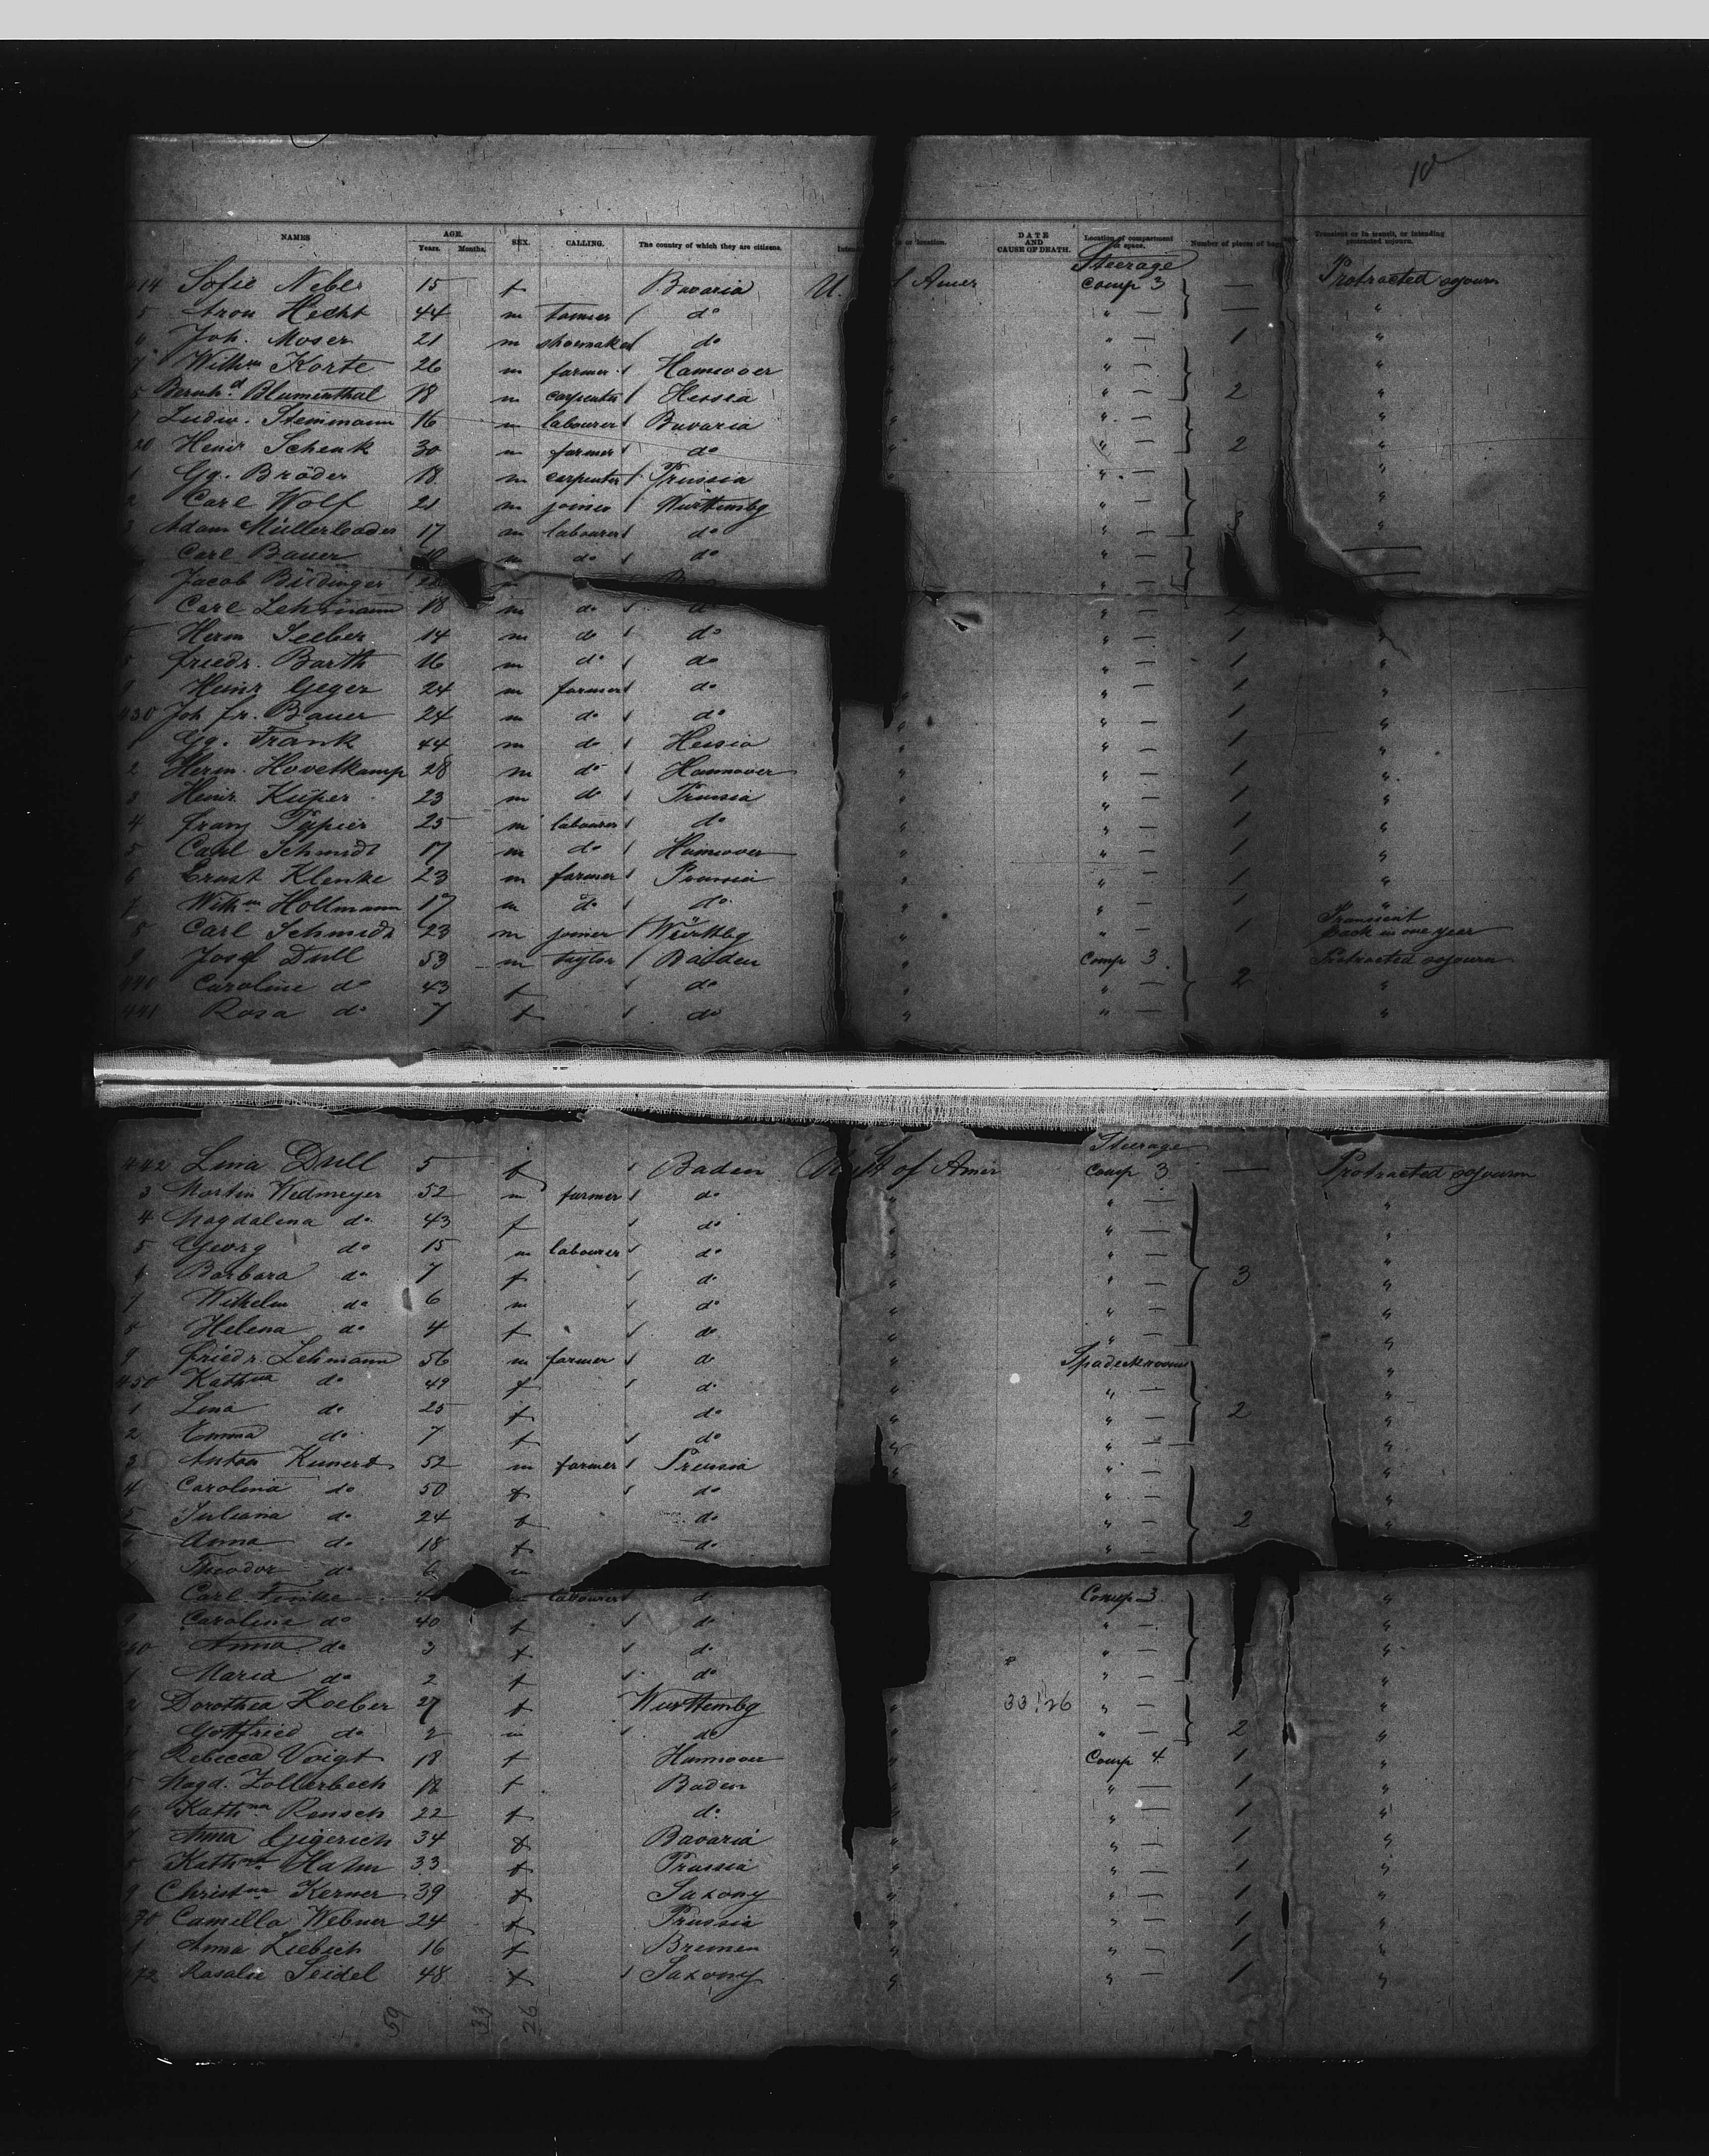 10
NAMES AGE. Years. Months. SEX. CALLING. The country of which they are citizens. or location. DATE AND CAUSE OF DEATH. Location of compartment or space. Number of pieces of Transient or in transit, or intending protracted sojourn.
Steerage
414 Sofie Neber 15 f Bavaria U. Amer Comp 3 — Protracted sojourn
5 Aron Hecht 44 m do " — — "
6 Joh. Moser 21 m shoemaker do " — 1 "
7 Wilhm Korte 26 m farmer Hannover " — "
Bernhd Blumenthal 18 m carpenter Hessia " — 2 "
Ludw. Steinmann 16 m labourer Bavaria " — "
20 Heinr Schenk 30 m farmer do " — 2 "
1 Gg. Bröder 18 m carpenter Prussia " — "
2 Carl Wolf 21 m joiner Württembg " — "
3 Adam Müller 17 m labourer do " — 3 "
Carl Bauer m do do " —
Jacob Büdinger " —
Carl Lehmann 18 m do do " — "
Herm Seeber 14 m do do " — 1 "
Friedr. Barth 16 m do do " — 1 "
9 Heinr Geger 24 m farmer do " — 1 "
430 Joh Fr. Bauer 24 m do do " " — 1 "
1 Gg. Frank 44 m do Hessia " " — 1 "
2 Herm. Hovetkamp 28 m do Hannover " " — 1 "
3 Heinr Küper 23 m do Prussia " " — 1 "
4 Franz Papier 25 m labourer do " " — 1 "
5 Carl Schmidt 17 m do Hannover " " — 1 "
6 Ernst Klenke 23 m farmer Prussia " " — 1 "
7 Wilhm Hollmann 17 m do do " " — 1 "
8 Carl Schmidt 23 m joiner Württbg " " — 1 Transient back in one year
9 Josef Dull 53 m taylor Baiden " Comp 3 Protracted sojourn
440 Caroline do 43 f do " " — 2 "
441 Rosa do 7 f do " " — "
Steerage
442 Lina Dull 5 f Baden of Amer Comp 3 — Protracted sojourn
3 Martin Wedmeyer 52 m farmer do " " — "
4 Magdalena do 43 f do " " — "
5 Georg do 15 m labourer do " " — "
6 Barbara do 7 f do " " — 3 "
7 Wilhelm do 6 m do " " — "
8 Helena do 4 f do " " — "
9 Friedr. Lehmann 56 m farmer do " Spardeckroom "
450 Kathna do 49 f do " " — "
1 Lina do 25 f do " " — 2 "
2 Emma do 7 f do " " — "
3 Anton Kunert 52 m farmer Preussia " " — "
4 Carolina do 50 f do " — "
5 Juliana do 24 f do " — 2 "
6 Anna do 18 f do " —
Theodor do 6 m
Carl Finke m labourer d Comp 3 "
9 Caroline do 40 f do " — "
460 Anna do 3 f do " — "
1 Maria do 2 f do " — "
2 Dorothea Koeber 27 f Württembg " 33 26 " — "
3 Gottfried do 2 m do " " — 2 "
4 Rebecca Voigt 18 f Hannover " Comp 4 1 "
5 Magd. Zollerbech 18 f Baden " " — 1 "
6 Kathna Rensch 22 f do " " — 1 "
7 Anna Gigerich 34 f Bavaria " " — 1 "
8 Kathna Hahn 33 f Prussia " " — 1 "
9 Christna Kerner 39 f Saxony " " — 1 "
70 Camilla Webner 24 f Prussia " " — 1 "
1 Anna Liebich 16 f Bremen " " — 1 "
472 Rosalie Seidel 48 f Saxony " " — 1 "
59 33 26